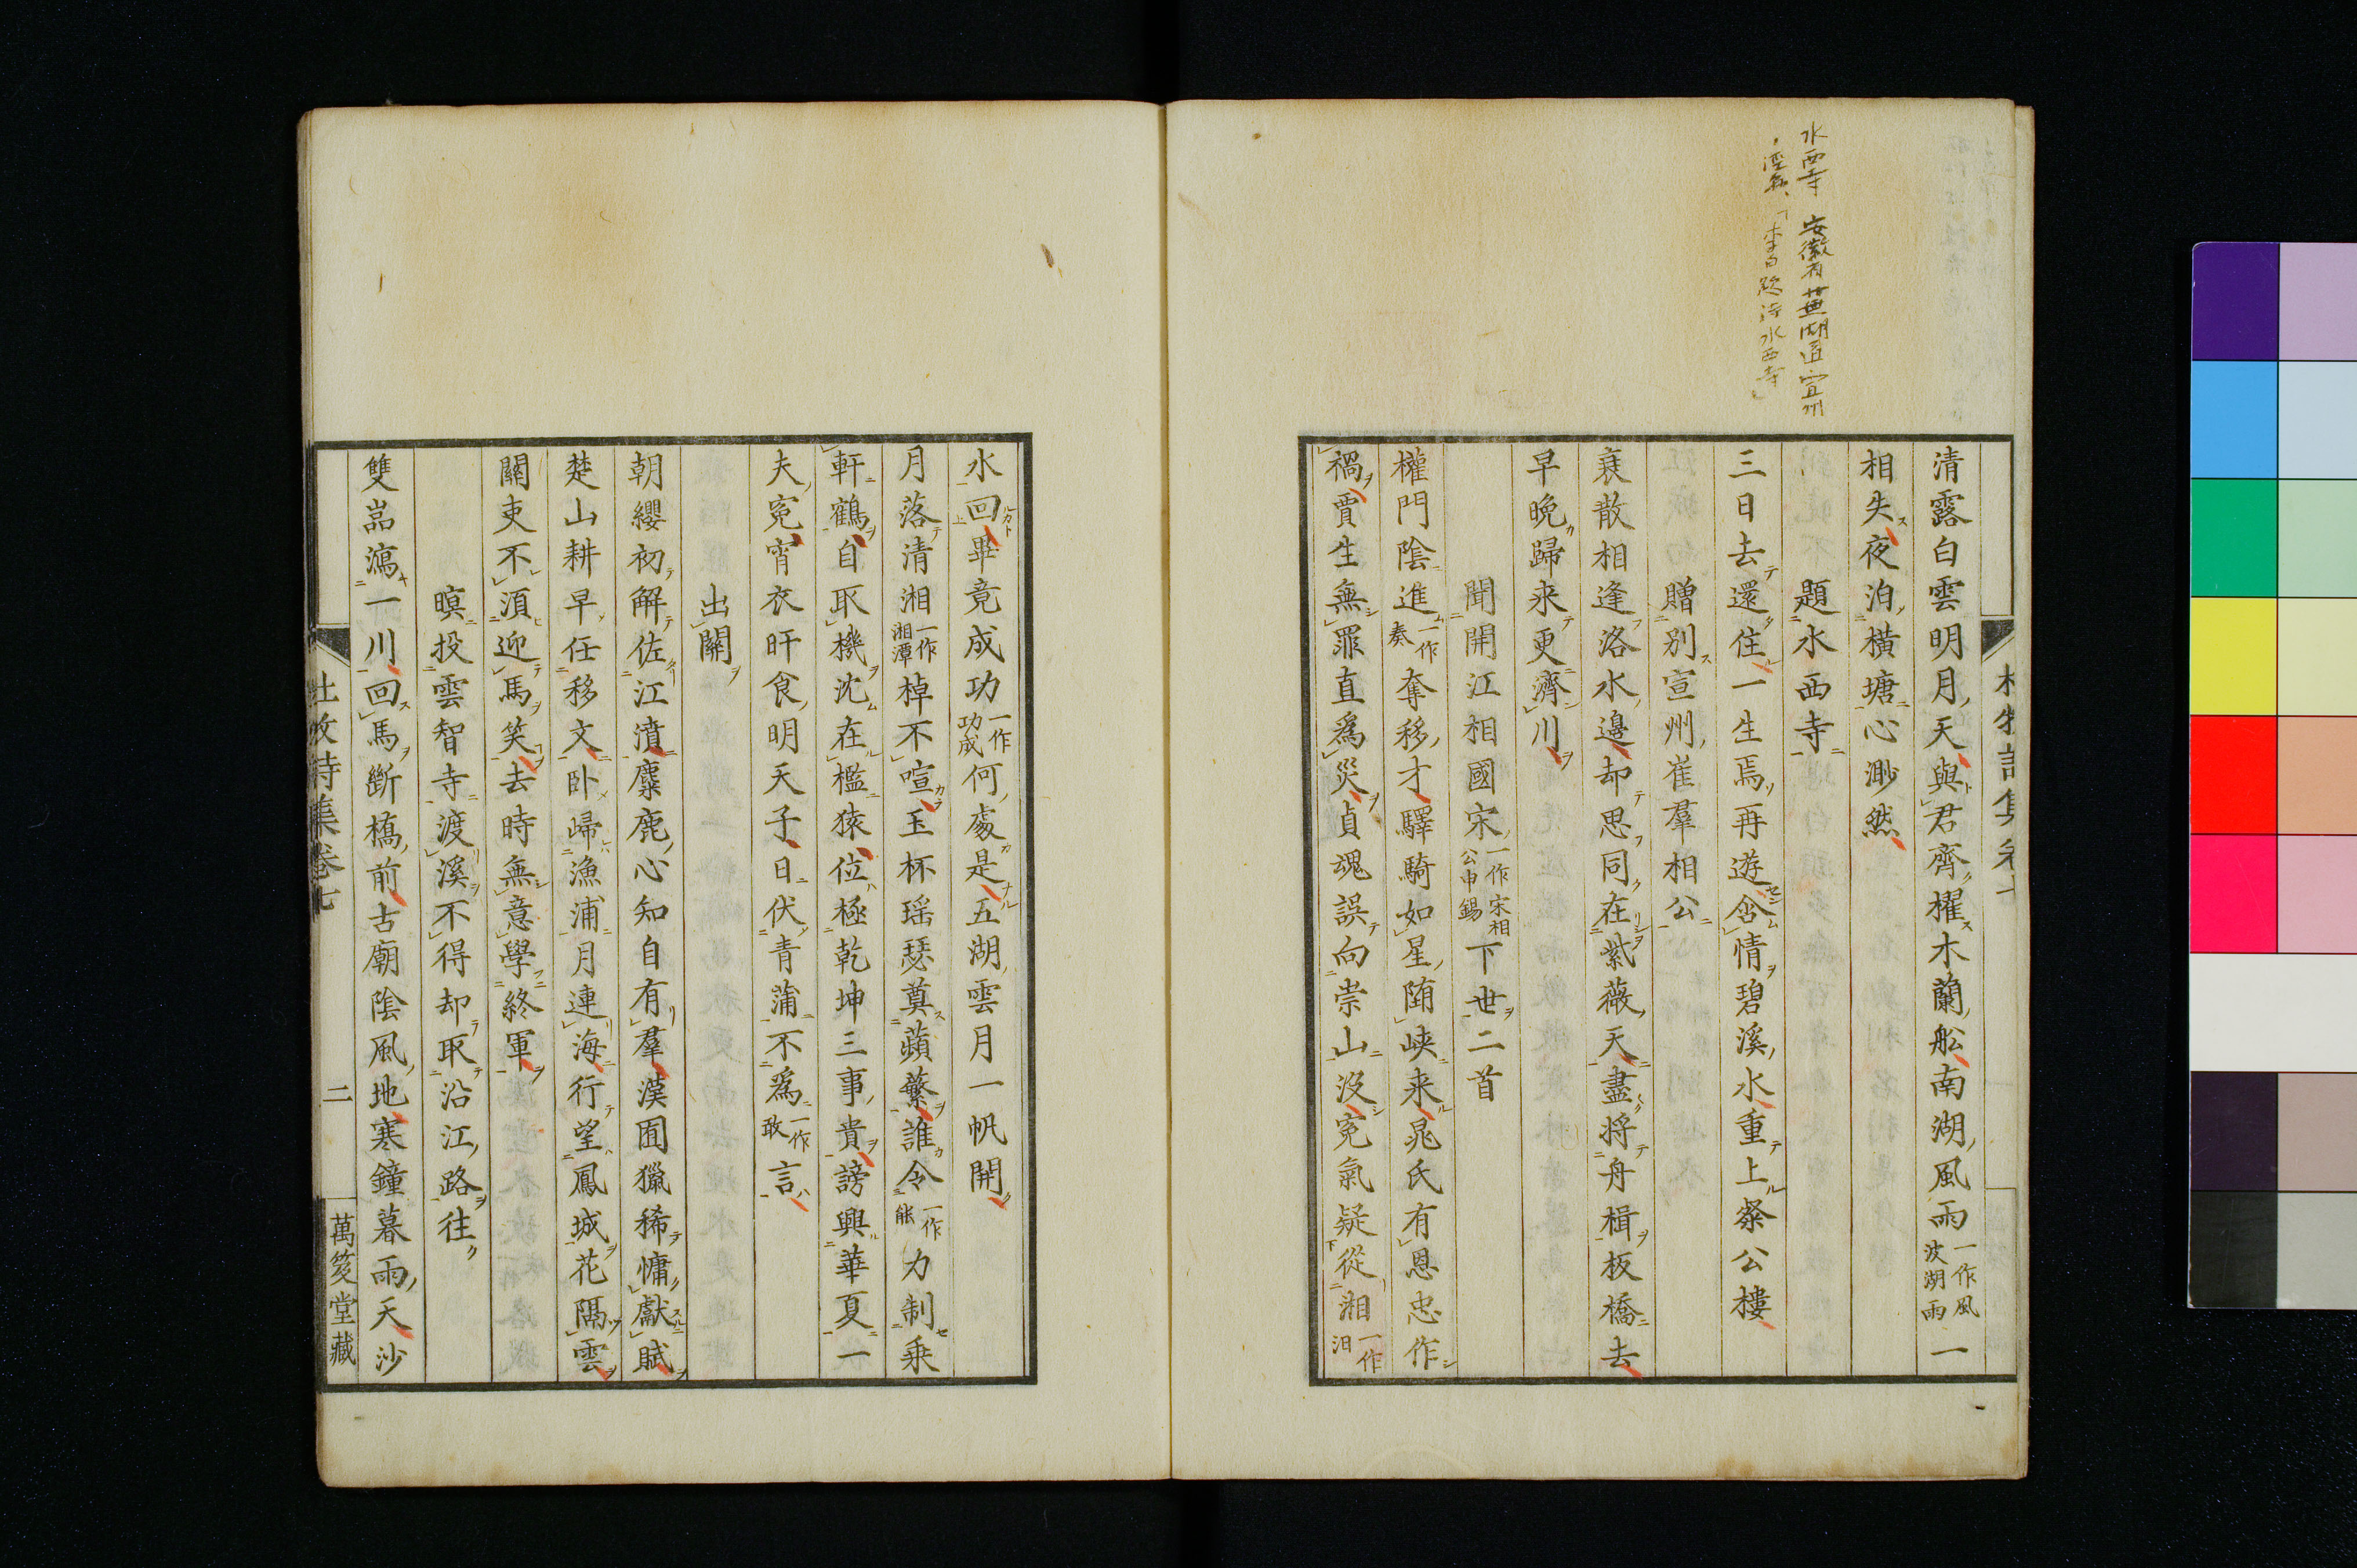 水西寺 安徽省蕪湖道宣州
涇縣、「李白題詩水西寺」
清露白雲明月天與君齊櫂木蘭船南湖風雨一作風波湖雨一
相失夜泊橫塘心渺然
題水西寺
三日去還住一生焉再遊含情碧溪水重上粲公樓
贈別宣州崔羣相公
衰散相逢洛水邊却思同在紫薇天盡將舟楫板橋去
早晚歸来更濟川
聞開江相國宋一作宋相公申錫下世二首
權門陰進一作奏奪移才驛騎如星堕峡来晁氏有恩忠作
禍賈生無罪直爲災貞魂誤向崇山没冤氣疑從湘一作汨
水回畢竟成功一作功成何處是五湖雲月一帆開
月落清湘一作湘潭棹不喧玉杯瑶瑟奠蘋蘩誰令一作能力制乗
軒鶴自取機沈在檻猿位極乾坤三事貴謗興華夏一
夫冤宵衣旰食明天子日伏青蒲不爲一作敢言
出關
朝纓初解佐江濆麋鹿心知自有羣漢囿獵稀慵獻賦
楚山耕早任移文卧歸漁浦月連海行望鳳城花隔雲
關吏不須迎馬笑去時無意學終軍
暝投雲智寺渡溪不得却取沿江路往
雙嵓瀉一川回馬斷橋前古廟陰風地寒鐘暮雨天沙
杜牧詩集卷七 二 萬笈堂藏